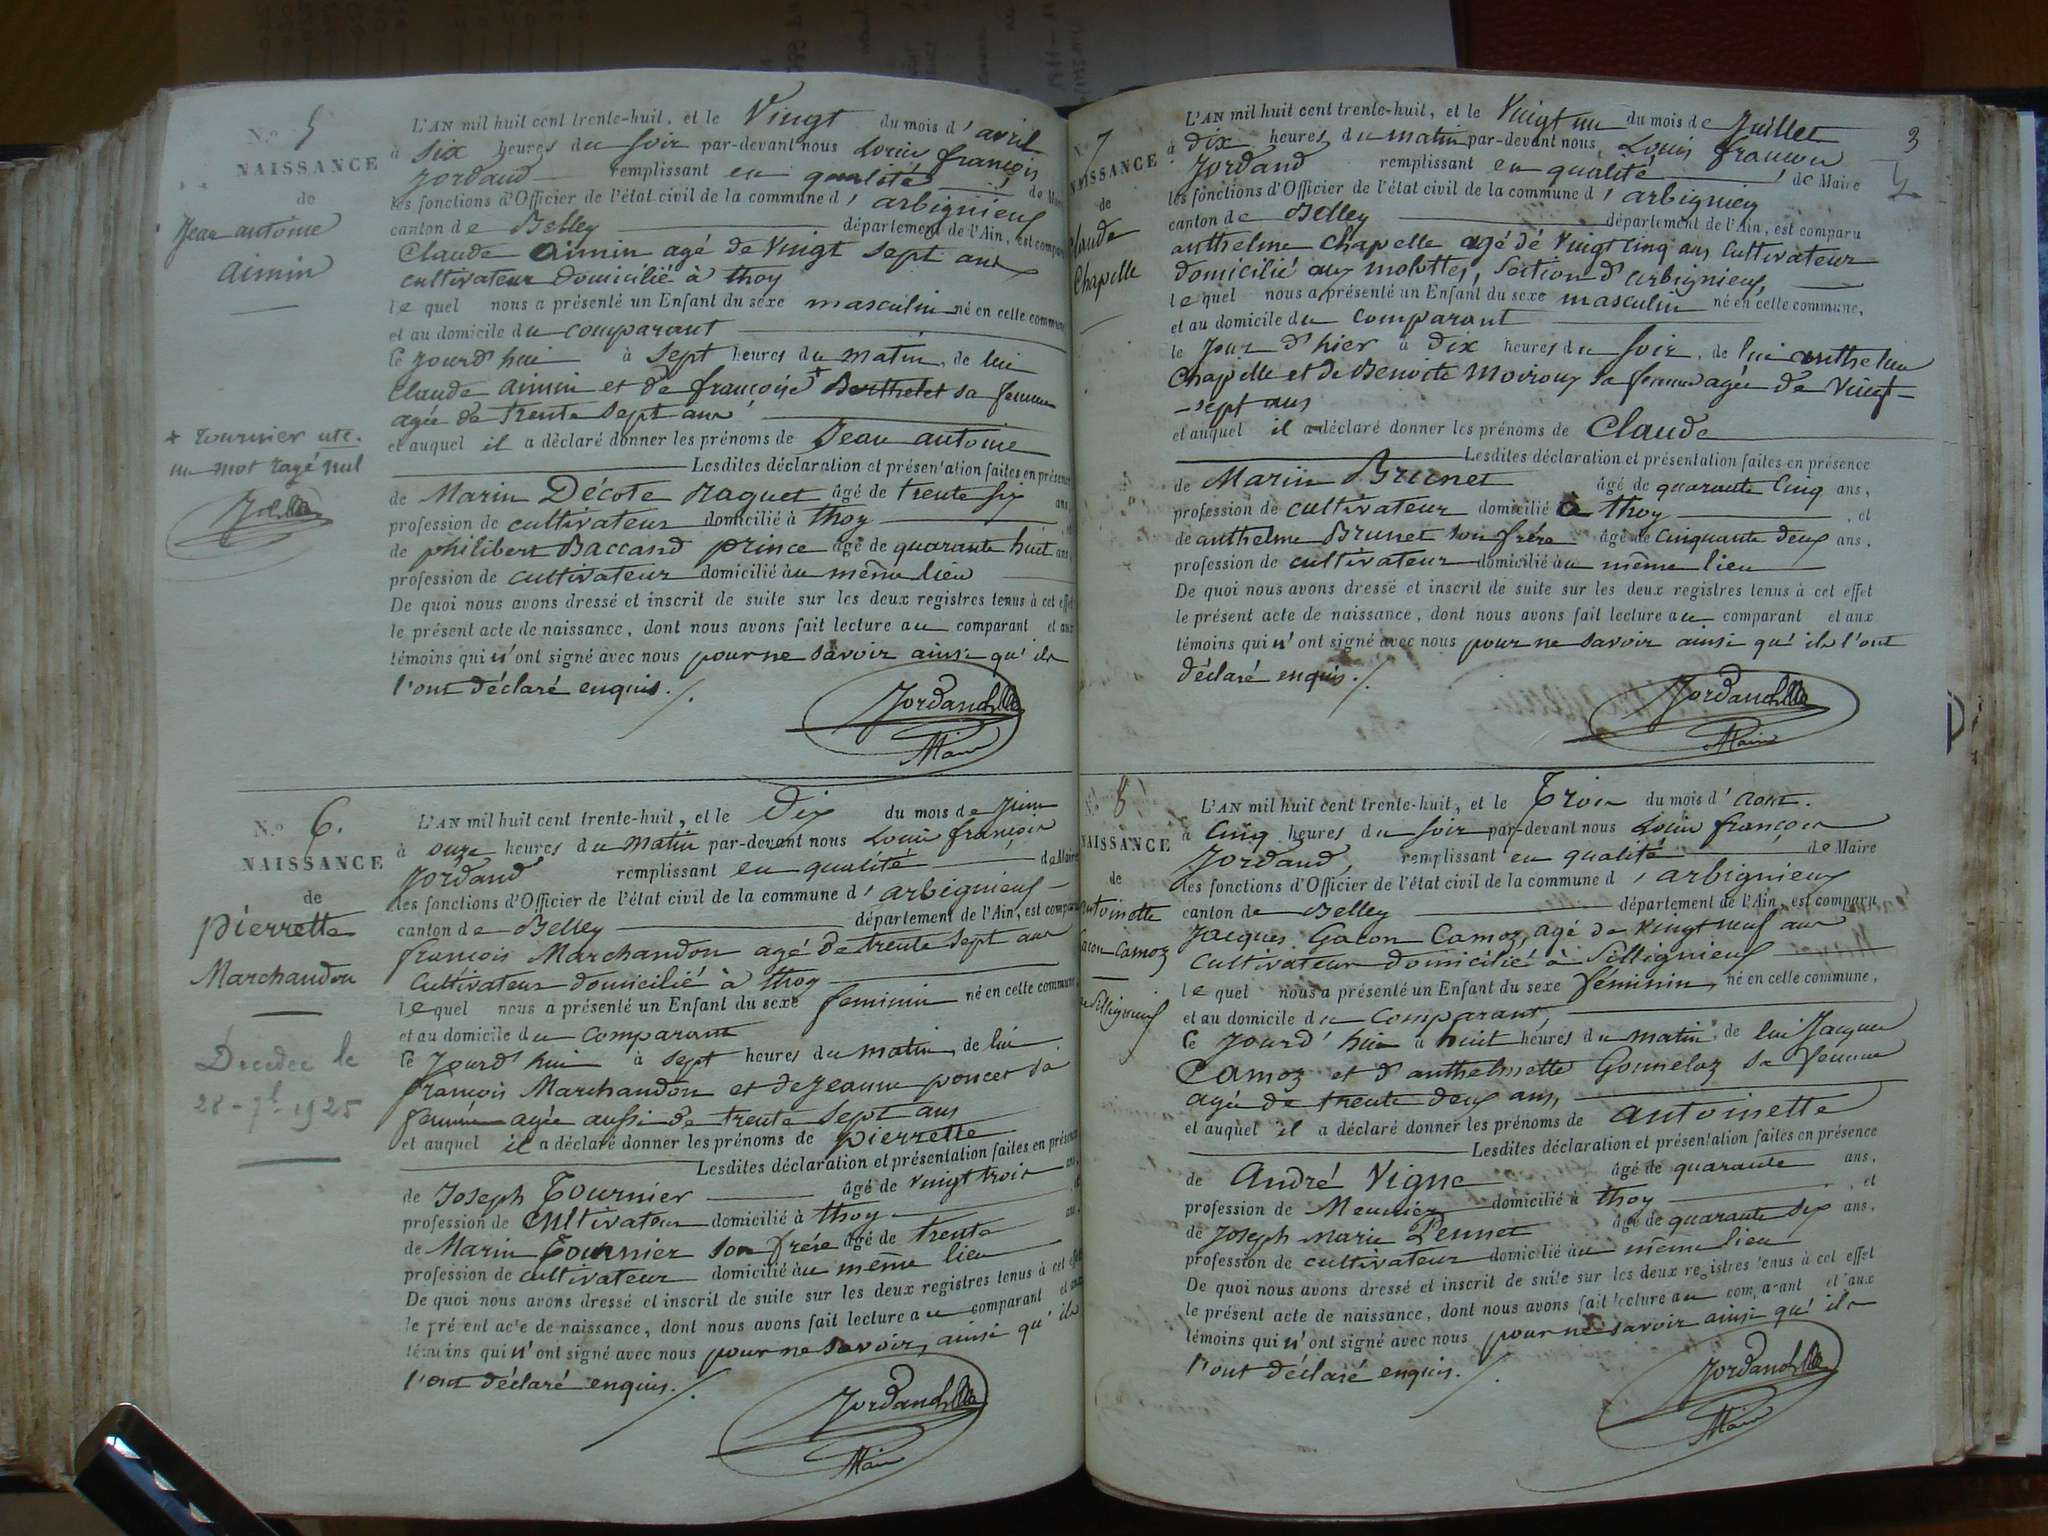 N.o 5
NAISSANCE
de
Jean antoine
aimin
+ tournier ute.
un mot rayé nul
L'AN mil huit cent trente-huit, et le Vingt du mois d'avril
à Six heures du Soir par-devant nous Louis françois
Jordand remplissant en qualité de Maire
les fonctions d'Officier de l'état civil de la commune d'arbignieu
canton de Belley département de l'Ain, est comparu
Claude aimin agé de Vingt Sept ans
cultivateur domicilié à thoy
lequel nous a présenté un Enfant du sexe masculin né en cette commune
et au domicile du comparant
ce Jourd'hui à Sept heures du matin, de lui
Claude aimin et de françoise + Berthelet sa femme
agée de trente Sept ans
et auquel il a déclaré donner les prénoms de Jean antoine
Lesdites déclaration et présentation faites en présence
de Marin Décote Raquet âgé de trente six ans
profession de cultivateur domicilié à thoy, et
de philibert Baccand prince âgé de quarante huit ans,
profession de cultivateur domicilié au même lieu
De quoi nous avons dressé et inscrit de suite sur les deux registres tenus à cet effet
le présent acte de naissance, dont nous avons fait lecture au comparant et aux
témoins qui n'ont signé avec nous pour ne savoir ainsi qu'ils
l'ont déclaré enquis./.
Jordand
Maire
N.o 6.
NAISSANCE
de
pierrette
Marchandon
Decedee le
28-7b-1925
L'AN mil huit cent trente-huit, et le Dix du mois de Juin
à onze heures du matin par-devant nous Louis françois
Jordand remplissant en qualité de Maire
les fonctions d'Officier de l'état civil de la commune d'arbignieu
canton de Belley département de l'Ain, est comparu
françois Marchandon agé de trente Sept ans
Cultivateur domicilié à thoy
lequel nous a présenté un Enfant du sexe feminin né en cette commune,
et au domicile du comparant
ce Jourd'hui à sept heures du matin, de lui
françois Marchandon et de Jeanne poncet sa
femme agée aussi de trente Sept ans
et auquel il a déclaré donner les prénoms de pierrette
Lesdites déclaration et présentation faites en présence
de Joseph Tournier âgé de vingt trois ans,
profession de cultivateur domicilié à thoy, et
de Marin Tournier son frére âgé de trente ans,
profession de cultivateur domicilié au même lieu
De quoi nous avons dressé et inscrit de suite sur les deux registres tenus à cet effet
le présent acte de naissance, dont nous avons fait lecture au comparant et aux
témoins qui n'ont signé avec nous pour ne savoir, ainsi qu'ils
l'ont déclaré enquis./.
Jordand
Maire
3
N.o 7
NAISSANCE
de
Claude
Chapelle
L'AN mil huit cent trente-huit, et le Vingt un du mois de Juillet
à dix heures du matin par-devant nous Louis françois
Jordand remplissant en qualité de Maire
les fonctions d'Officier de l'état civil de la commune d'arbignieu
canton de Belley département de l'Ain, est comparu
anthelme Chapelle agé de Vingt cinq ans, Cultivateur
domicilié aux molottes, Section d'arbignieu,
lequel nous a présenté un Enfant du sexe masculin né en cette commune,
et au domicile du comparant
le Jour d'hier à dix heures du Soir, de lui anthelme
Chapelle et de Benoite Moiroux sa femme agée de Vingt-
-sept ans
et auquel il a déclaré donner les prénoms de Claude
Lesdites déclaration et présentation faites en présence
de Marin Brunet âgé de quarante Cinq ans,
profession de cultivateur domicilié à thoy, et
de anthelme Brunet son frére âgé de Cinquante deux ans,
profession de cultivateur domicilié au même lieu
De quoi nous avons dressé et inscrit de suite sur les deux registres tenus à cet effet
le présent acte de naissance, dont nous avons fait lecture au comparant et aux
témoins qui n'ont signé avec nous pour ne savoir ainsi qu'ils l'ont
déclaré enquis./.
Jordand
Maire
N.o 8
NAISSANCE
de
antoinette
Gacon-Camoz
de Sillignieu
L'AN mil huit cent trente-huit, et le Trois du mois d'aout.
à Cinq heures du Soir par-devant nous Louis françois
Jordand, remplissant en qualité de Maire
les fonctions d'Officier de l'état civil de la commune d'arbignieu
canton de Belley département de l'Ain, est comparu
Jacques Gacon Camoz, agé de Vingt neuf ans
Cultivateur domicilié à Sillignieu
lequel nous a présenté un Enfant du sexe féminin, né en cette commune,
et au domicile du comparant,
ce Jourd'hui à huit heures du matin, de lui Jacques
Camoz et d'anthelmette Gonneloz sa femme
agée de trente deux ans,
et auquel il a déclaré donner les prénoms de antoinette
Lesdites déclaration et présentation faites en présence
de André Vigne âgé de quarante ans,
profession de Meunier domicilié à thoy, et
de Joseph Marie Pennet âgé de quarante six ans,
profession de cultivateur domicilié au même lieu
De quoi nous avons dressé et inscrit de suite sur les deux registres tenus à cet effet
le présent acte de naissance, dont nous avons fait lecture au comparant et aux
témoins qui n'ont signé avec nous pour ne savoir ainsi qu'ils
l'ont déclaré enquis./.
Jordand
Maire